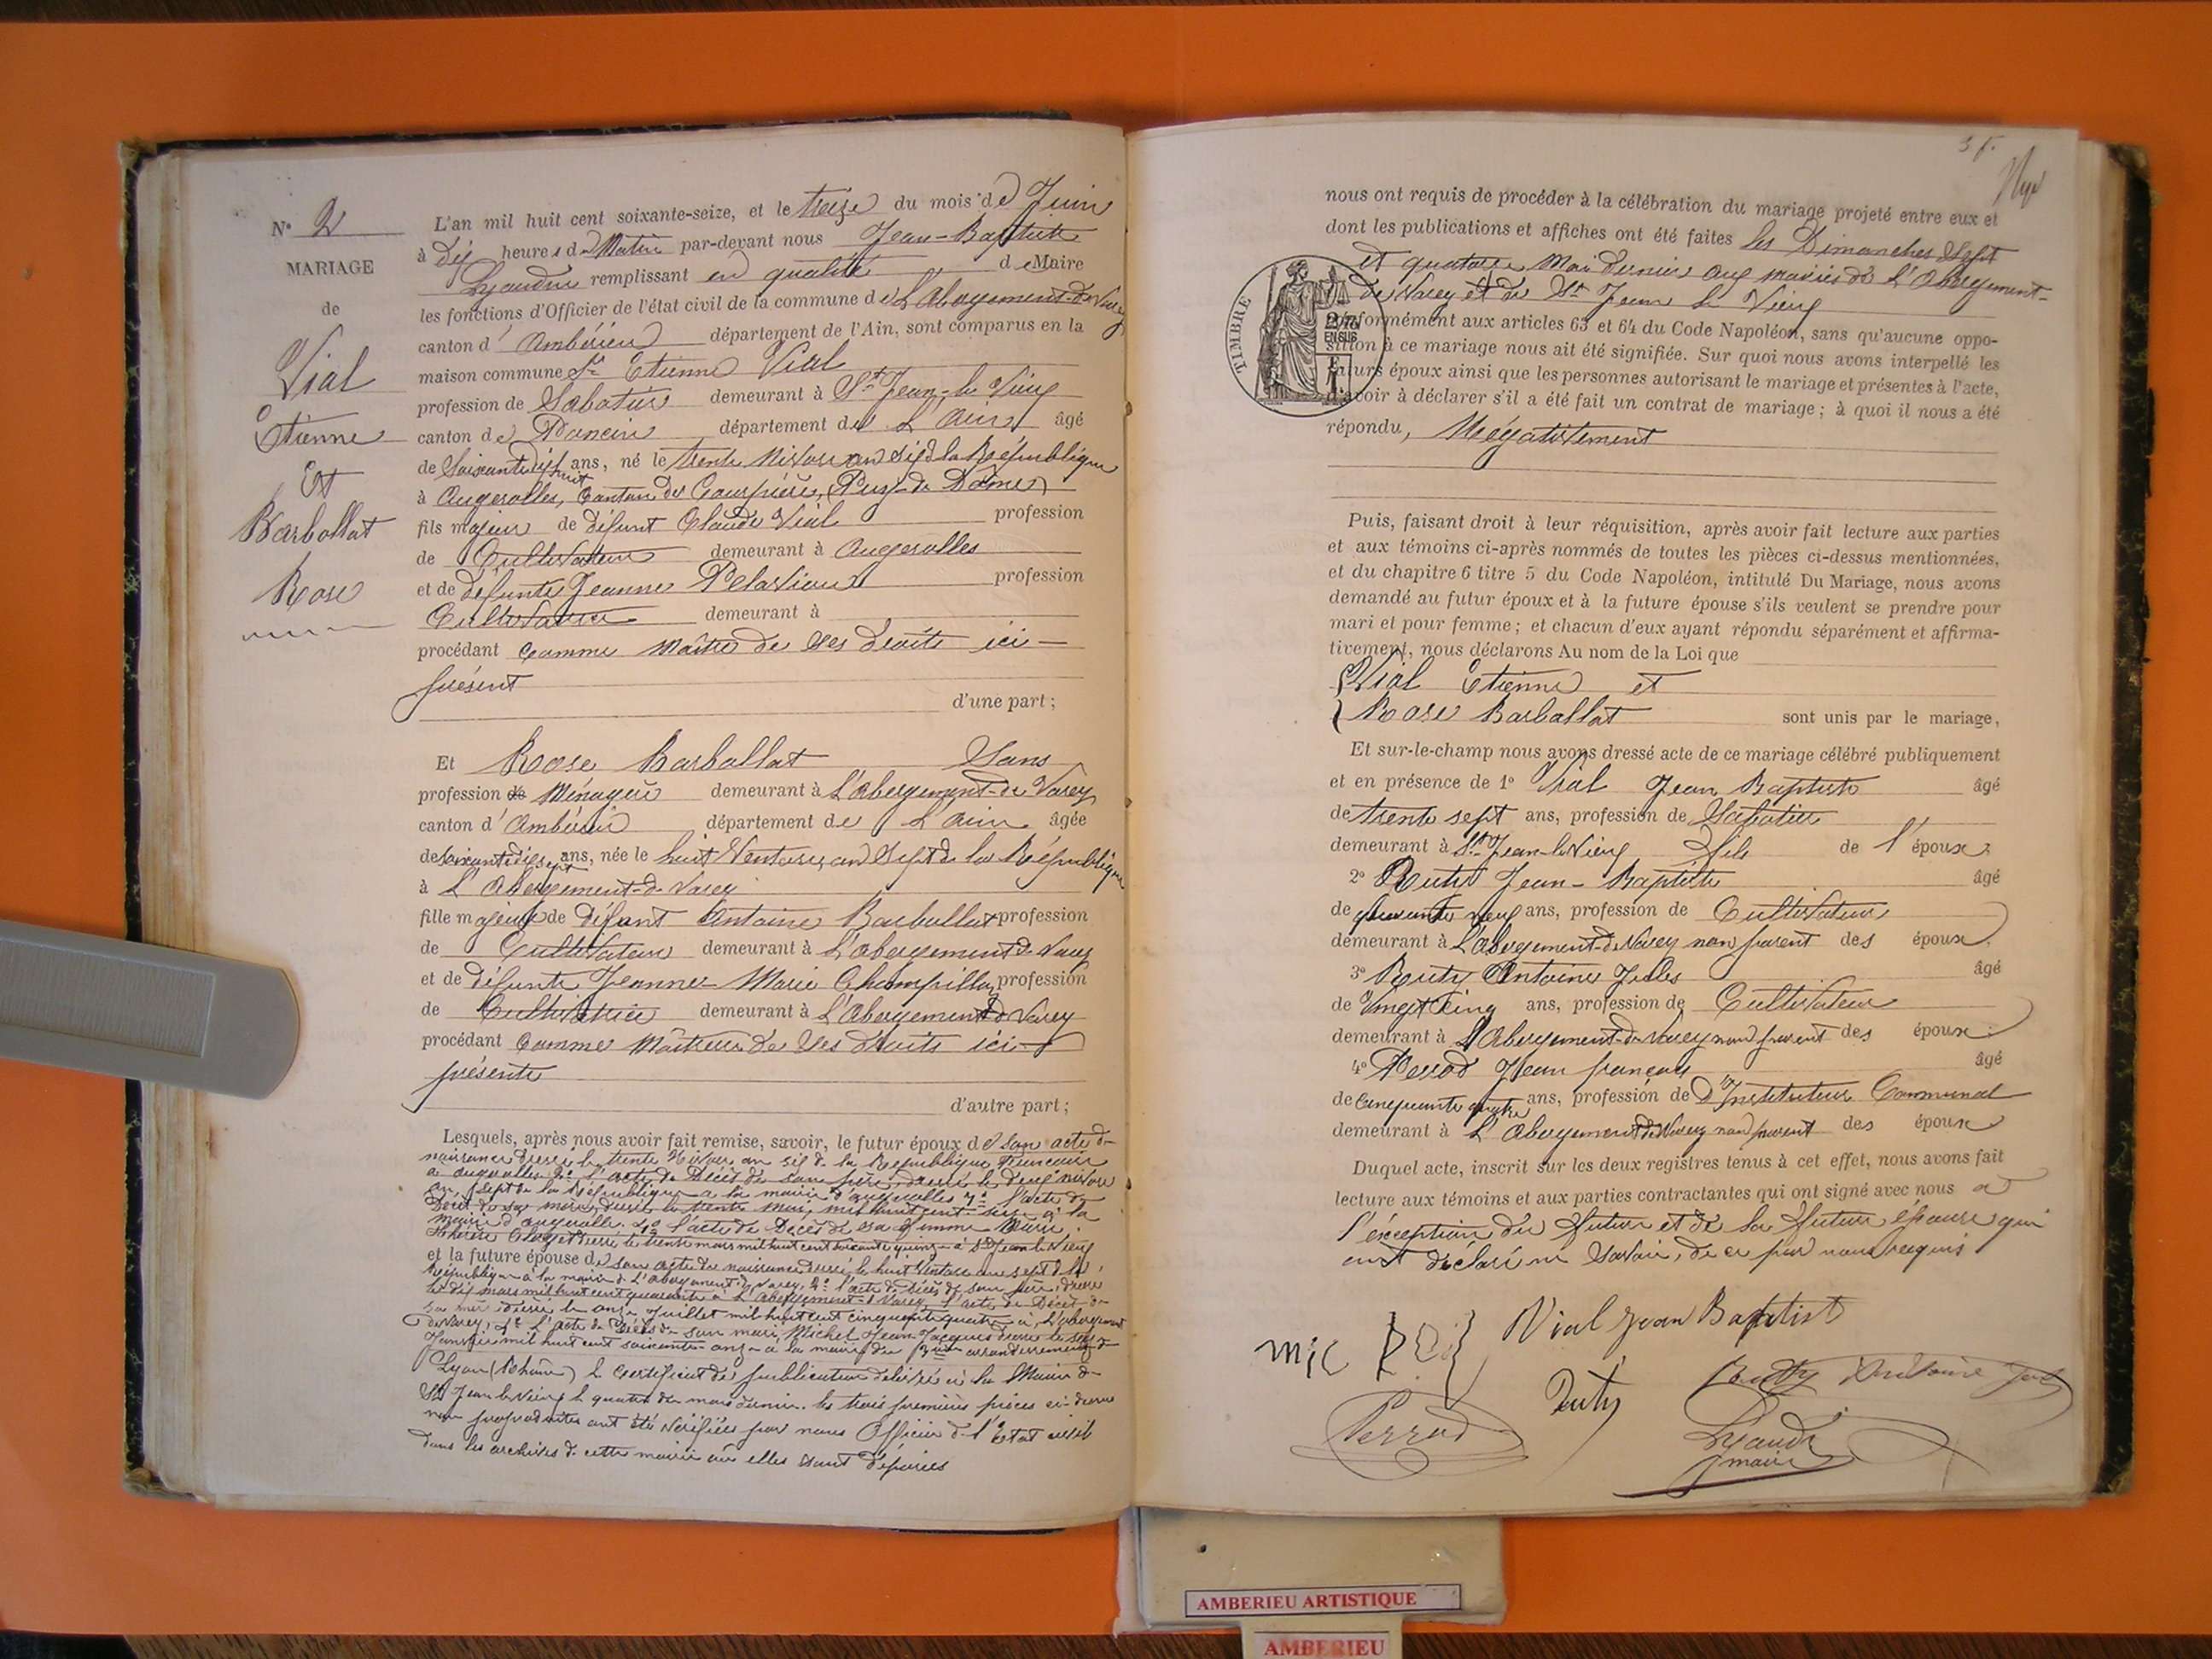 N° 2
MARIAGE
de
Vial
Etienne
Et
Barbollat
Rose
L'an mil huit cent soixante-seize, et le treize du mois de Juin
à dix heures du Matin par-devant nous Jean-Baptiste
Lyaudin remplissant en qualité de Maire
les fonctions d'Officier de l'état civil de la commune de L'Abergement-de-Varey
canton d'Ambérieu département de l'Ain, sont comparus en la
maison commune Sr Etienne Vial
profession de Sabotier demeurant à St Jean-le Vieux
canton de Poncin département de L'Ain âgé
de Soixante dix huit ans, né le trente Nivose an six de la République
à Augerolles, Canton de Courpière, (Puy-de Dôme)
fils majeur de défunt Claude Vial profession
de Cultivateur demeurant à Augerolles
et de défunte Jeanne profession
Cultivatrice demeurant à
procédant comme Maître de ses droits ici
présent
d'une part;
Et Rose Barbollat Sans
profession de Ménagère demeurant à L'Abergement-de Varey
canton d'Ambérieu département de L'Ain âgée
de soixante dix sept ans, née le huit Ventose, an Sept de la République
à L'Abergement-de Varey
fille majeure de défunt Antoine Barbollat profession
de Cultivateur demeurant à L'Abergement de Varey
et de défunte Jeanne Marie Champillon profession
de Cultivatrice demeurant à L'Abergement de Varey
procédant Comme Maîtresse de ses droits ici
présente
d'autre part;
Lesquels, après nous avoir fait remise, savoir, le futur époux de son acte de
naissance dressé le trente Nivose an six de la République Française
à Augerolles 2° l'acte de Décès de son père dressé le deux nivose
an sept de la République a la mairie d'augerolles 3° l'acte de
Décès de sa mère, dressé le trente mai mil huit cent seize à la
mairie d'augerolle. 4° l'acte de Décès de sa femme Marie
dressé le trente mars mil huit cent soixante quinze à St Jean le Vieux
et la future épouse de son acte de naissance dressé le huit Ventose an sept de la
République à la mairie de L'Abergement de Varey, 2° l'acte de Décès de son père, dressé
le dix mars mil huit cent quarante à L'Abergement de Varey l'acte de Décès de
sa mère dressé le onze Juillet mil huit cent cinquante quatre à L'abergement
de Varey, 4° L'acte de Décès de son mari, Michel Jean Jacques dressé le
Janvier mil huit cent soixante onze à la mairie du arrondissement de
Lyon (Rhône) le certificat de publication délivré à la Mairie de
St Jean le Vieux le quatre du mois dernier. les trois premières pièces ci-dessus
non produites ont été vérifiées par nous Officier de l'Etat civil
dans les archives de cette mairie où elles sont déposées
nous ont requis de procéder à la célébration du mariage projeté entre eux et
dont les publications et affiches ont été faites les Dimanches Sept
et quatorze Mai dernier aux mairies de L'Abergement-
de Varey et de St Jean le Vieux
TIMBRE
Conformément aux articles 63 et 64 du Code Napoléon, sans qu'aucune oppo-
sition à ce mariage nous ait été signifiée. Sur quoi nous avons interpellé les
futurs époux ainsi que les personnes autorisant le mariage et présentes à l'acte,
d'avoir à déclarer s'il a été fait un contrat de mariage; à quoi il nous a été
répondu, Négativement
Puis, faisant droit à leur réquisition, après avoir fait lecture aux parties
et aux témoins ci-après nommés de toutes les pièces ci-dessus mentionnées,
et du chapitre 6 titre 5 du Code Napoléon, intitulé Du Mariage, nous avons
demandé au futur époux et à la future épouse s'ils veulent se prendre pour
mari et pour femme; et chacun d'eux ayant répondu séparément et affirma-
tivement, nous déclarons Au nom de la Loi que
Vial Etienne et
Rose Barbollat sont unis par le mariage,
Et sur-le-champ nous avons dressé acte de ce mariage célébré publiquement
et en présence de 1° Vial Jean Baptiste âgé
de trente sept ans, profession de Sabotier
demeurant à St Jean-le Vieux fils de l'époux
2° Jean-Baptiste âgé
de quarante neuf ans, profession de Cultivateur
demeurant à L'Abergement-de Varey non parent des époux
3° Routy Antoine Jules âgé
de Vingt Cinq ans, profession de Cultivateur
demeurant à L'Abergement-de Varey non parent des époux
4° Perrod Jean françois âgé
de Cinquante quatre ans, profession de D'Instituteur Communal
demeurant à L'Abergement de Varey non parent des époux
Duquel acte, inscrit sur les deux registres tenus à cet effet, nous avons fait
lecture aux témoins et aux parties contractantes qui ont signé avec nous à
l'exception du futur et de la future épouse qui
ont déclaré ne savoir, de ce par nous requis
Vial Jean Baptist
Routy Antoine Jul
Perrod
Lyaudin
maire
AMBERIEU ARTISTIQUE
AMBERIEU